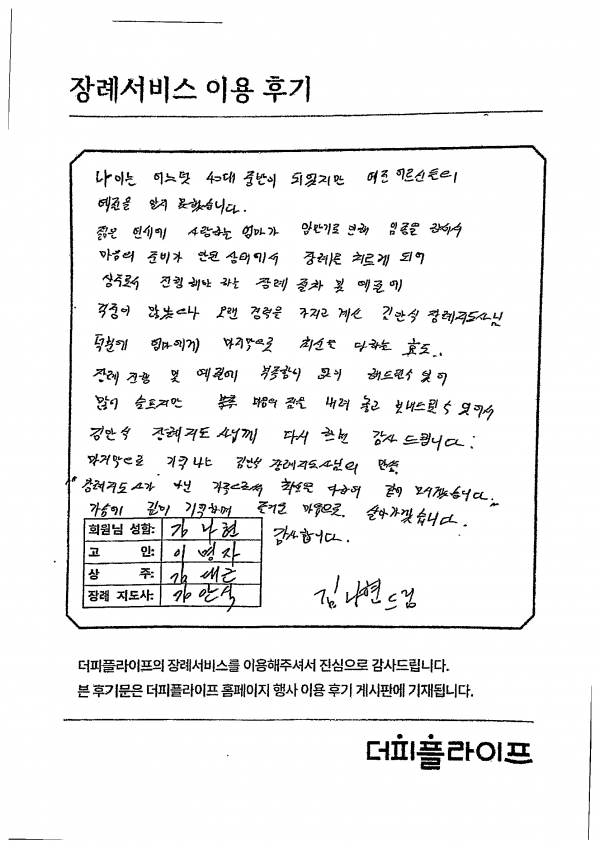 장례서비스 이용 후기
나이는 어느덧 40대 중반이 되었지만 여전히
예절을 알지 못했습니다.
젊은 연세에 사랑하는 엄마가 암말기로 인해 임종을 하셔서
마음의 준비가 안된 상태에서 장례를 치르게 되어
상주로서 진행해야 하는 장례 절차 및 예절에
걱정이 많았으나 오랜 경력을 가지고 계신 김안식 장례지도사님
덕분에 엄마에게 마지막으로 최선을 다하는 효도..
장례 진행 및 예절에 부족함이 없이 해드릴수 있어
많이 슬프지만 마음의 짐을 내려 놓고 보내드릴 수 있어서
김안식 장례지도사님께 다시 한번 감사 드립니다.
마지막으로 기억나는 김안식 장례지도사님의 말씀.
"장례지도사가 아닌 가족으로써 최선을 다하여 같이 모시겠습니다.
가슴에 깊이 기억하며 즐거운 마음으로 살아가겠습니다.
감사합니다.
회원님 성함: 김나현
고 인: 이명자
상 주: 김
장례 지도사: 김안식
김나현드림
더피플라이프의 장례서비스를 이용해주셔서 진심으로 감사드립니다.
본 후기문은 더피플라이프 홈페이지 행사 이용 후기 게시판에 기재됩니다.
더피플라이프